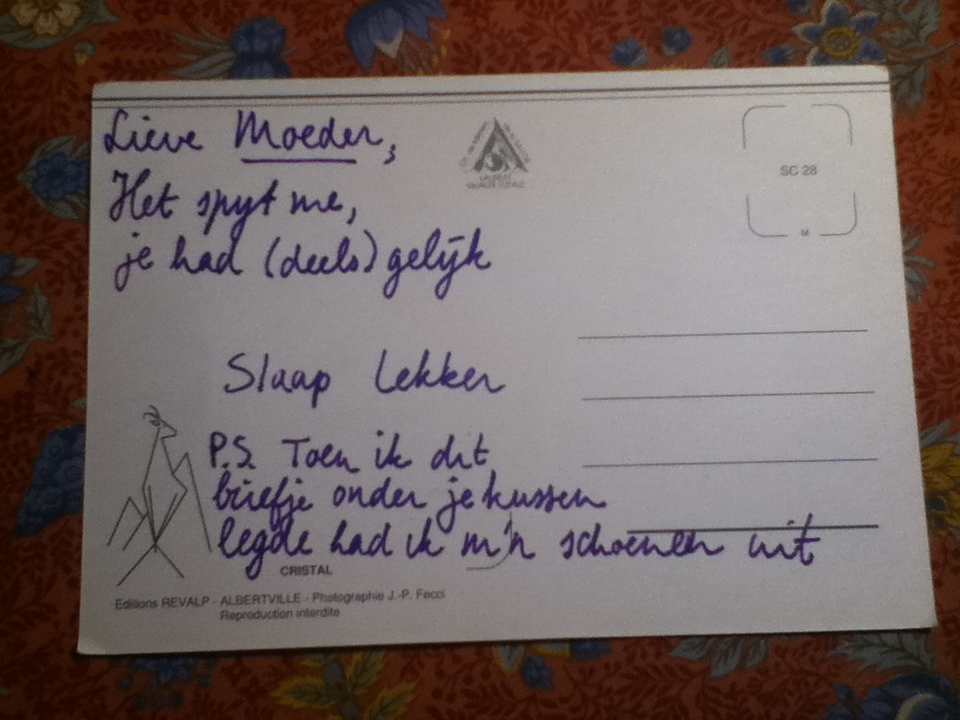 Lieve Moeder,
Het spyt me,
je had (deels) gelijk
Slaap lekker
P.S. Toen ik dit
briefje onder je kussen
legde had ik m'n schoenen uit
SC 28
M
LAUREAT
QUALITE TOTALE
CRISTAL
Editions REVALP - ALBERTVILLE - Photographie J.-P. Fecci
Reproduction interdite